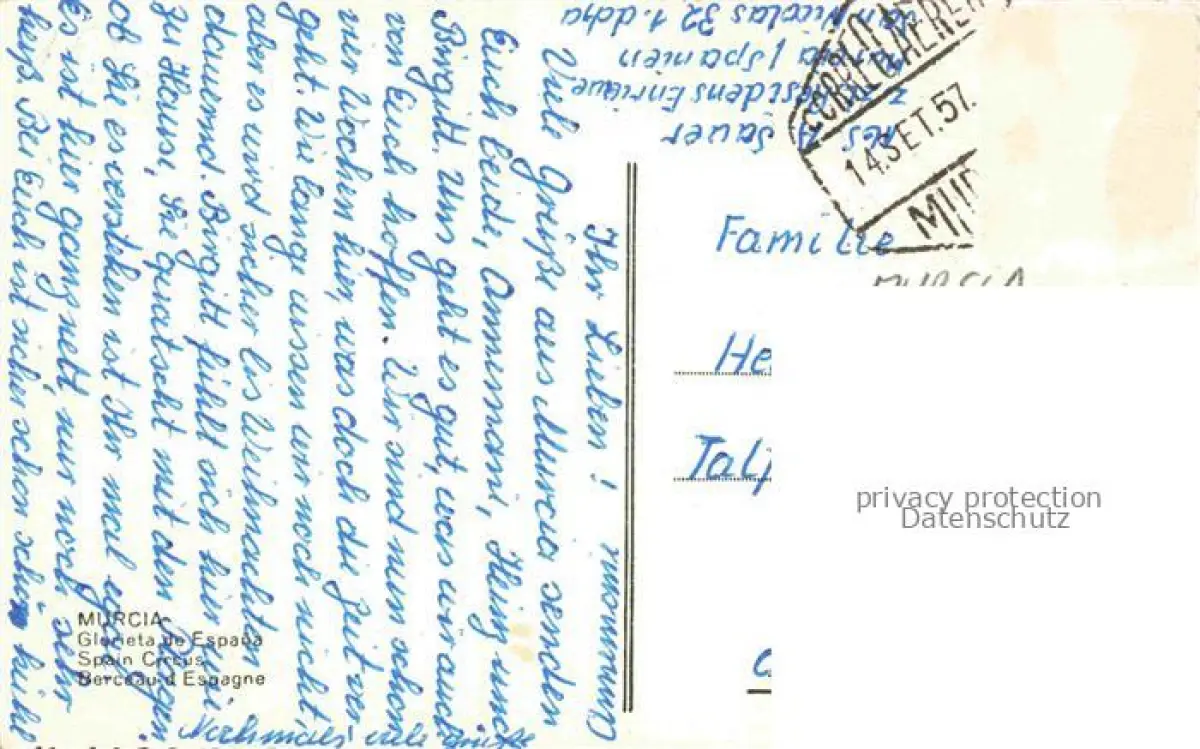 Ihr Lieben!
Viele Grüße aus Murcia senden
Euch beide, Annemarie, Heinz und
Birgitt. Uns geht es gut, was wir auch
von Euch hoffen. Wir sind nun schon
vier Wochen hier, was doch die Zeit ver
geht. Wie lange wissen wir noch nicht,
aber es wird sicher bis Weihnachten
dauernd. Birgitt fühlt sich hier wie
zu Hause, Sie quatscht mit den
ob Sie es verstehen ist Ihr mal egal
Es ist hier ganz nett, nur noch sehr
heiß. Bei Euch ist sicher schon schön kühl
Nochmals viele Grüße
MURCIA
Glorieta de España
Spain Circus
Berceau d'Espagne
A Sauer
Residens Enrique
Murcia / Spanien
Nicolas 32 1. dcha
CORREO AEREO
14. SET. 57.
MUR
MURCIA
Familie
He
Talf
privacy protection
Datenschutz